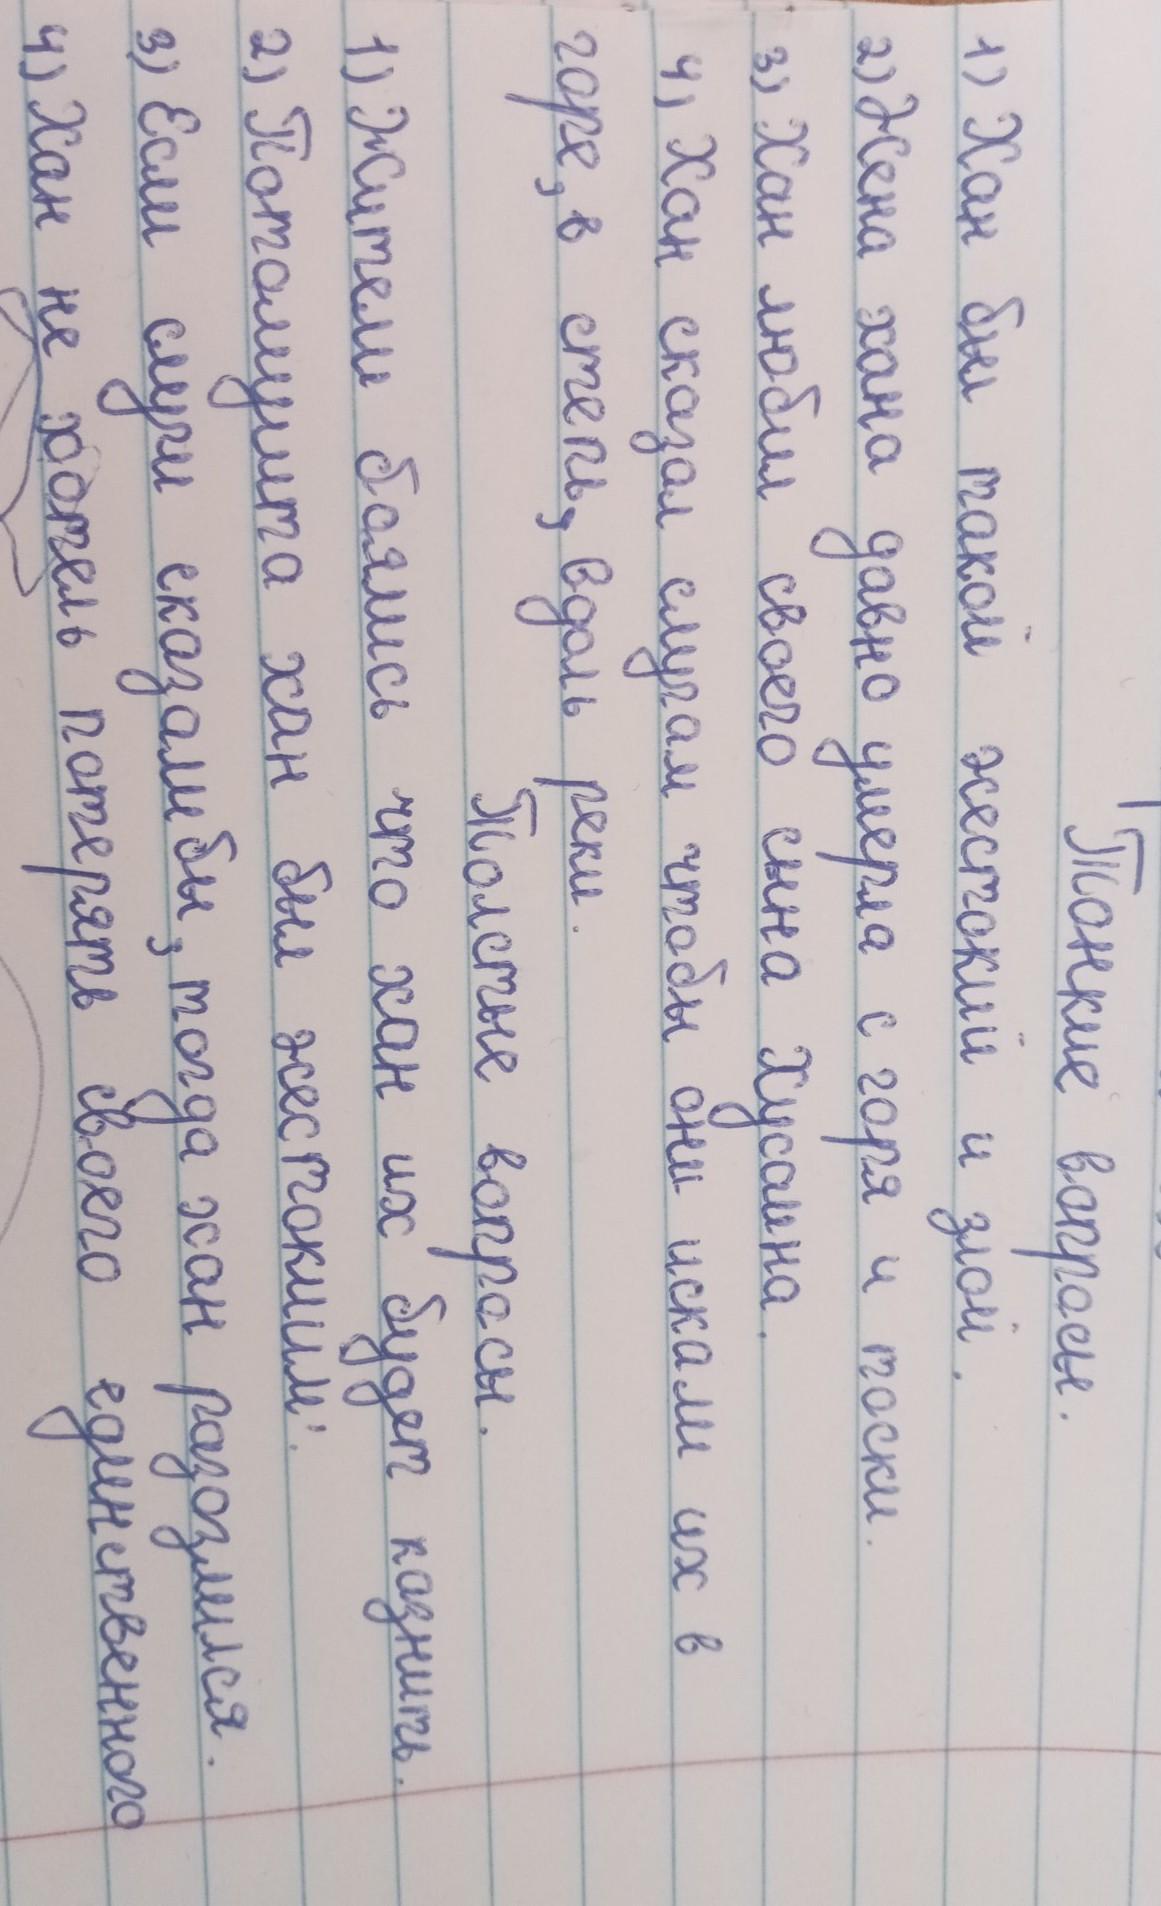 Тонкие вопросы.
1) Хан был такой жестокий и злой.
2) Жена хана давно умерла с горя и тоски.
3) Хан любил своего сына Хусаина.
4) Хан сказал слугам чтобы они искали их в
горе, в степь, вдоль реки.
Толстые вопросы.
1) Жители боялись что хан их будет казнить.
2) Потомушта хан был жестоким.
3) Если слуги сказали бы, тогда хан разозлился.
4) Хан не хотель потерять своего единственного